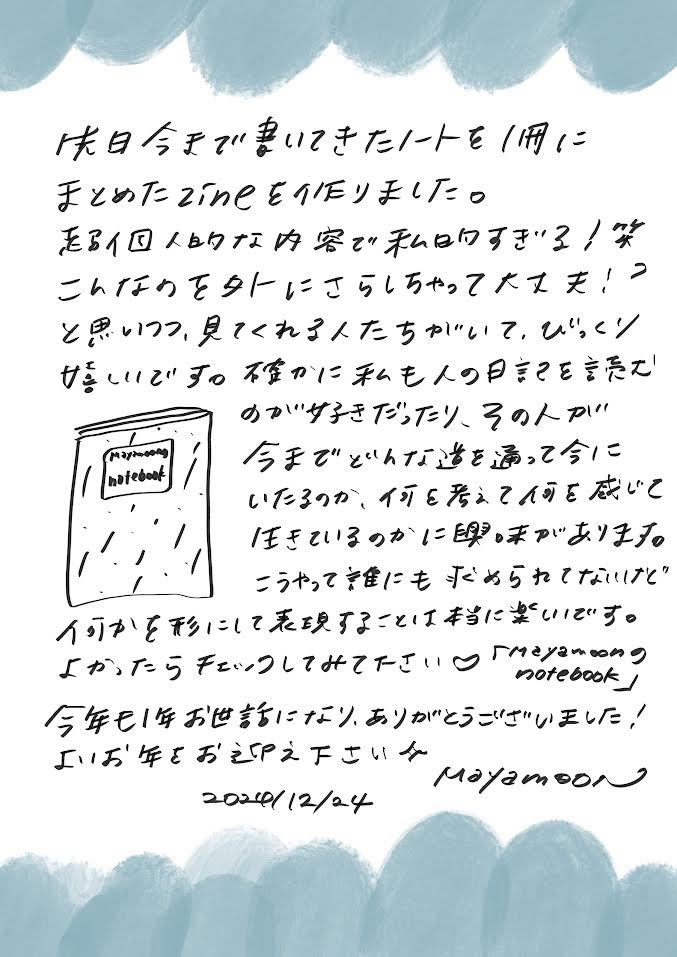 先日今まで書いてきたノートを1冊に
まとめたzineを作りました。
超個人的な内容で私的すぎる！笑
こんなのを外にさらしちゃって大丈夫！？
と思いつつ、見てくれる人たちがいて、びっくり
嬉しいです。確かに私も人の日記を読む
のが好きだったり、その人が
今までどんな道を通って今に
いたるのか、何を考えて何を感じて
生きているのかに興味があります。
こうやって誰にも求められてないけど
何かを形にして表現することは本当に楽いです。
よかったらチェックしてみて下さい♡「Mayamoonの
notebook」
Mayamoonの
notebook
今年も1年お世話になり、ありがとうございました！
よいお年をお迎え下さい☆
Mayamoon
2024/12/24